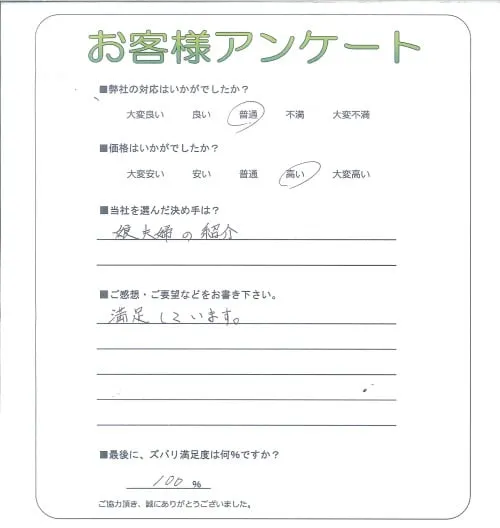 お客様アンケート
■弊社の対応はいかがでしたか？
大変良い 良い 普通 不満 大変不満
■価格はいかがでしたか？
大変安い 安い 普通 高い 大変高い
■当社を選んだ決め手は？
娘夫婦の紹介
■ご感想・ご要望などをお書き下さい。
満足しています。
■最後に、ズバリ満足度は何%ですか？
100 %
ご協力頂き、誠にありがとうございました。